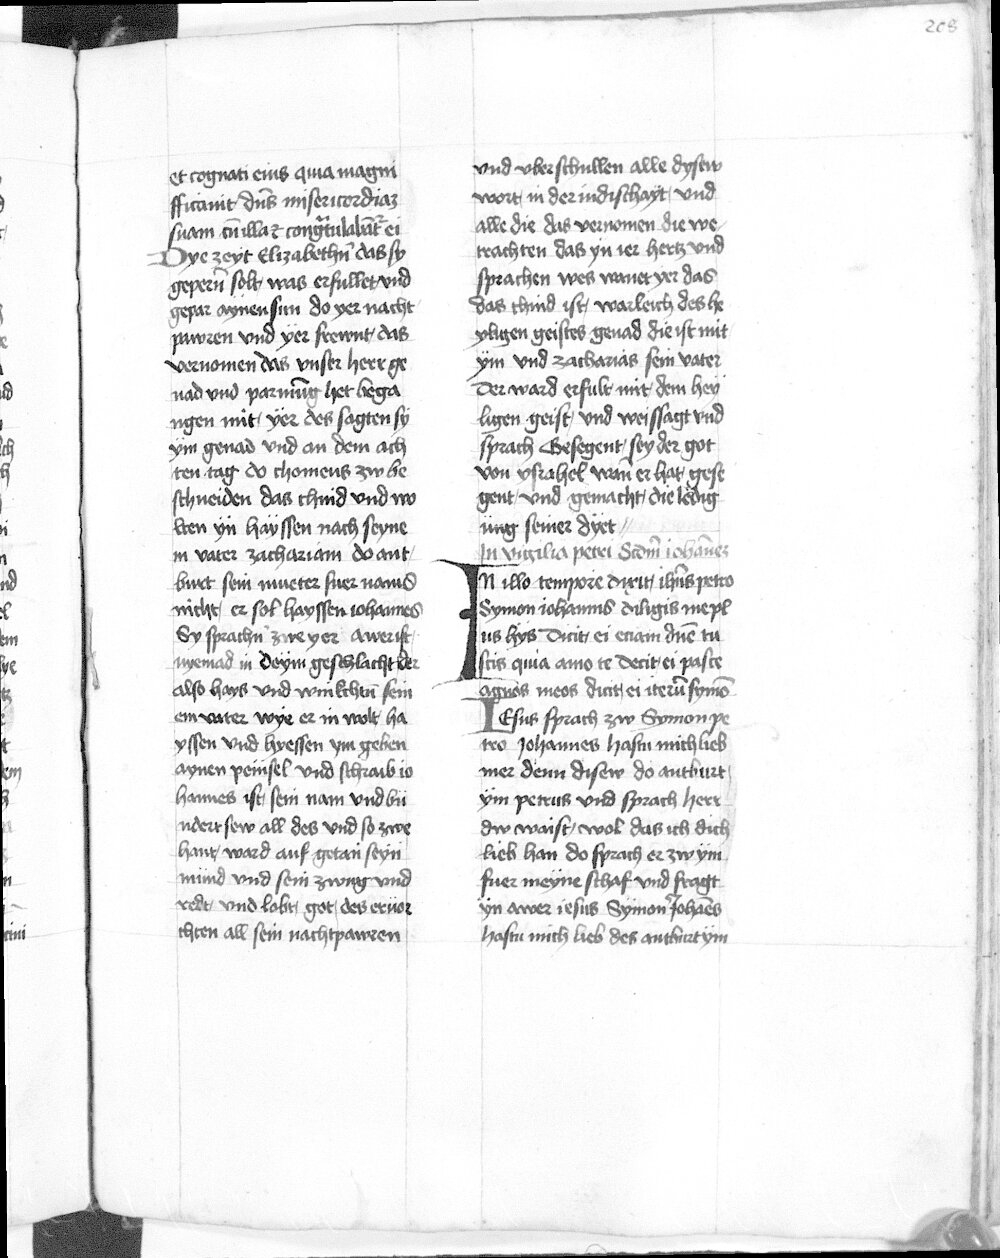 208
et cognati eius quia magni
fficauit dn̄s misericordiaz
suam cū illa et congratulabāt ei
Dye zeyt Elizabethn̄ das sy
gepern̄ solt was erfullet vnd
gepar aynen sun do yer nacht
pawren vnd yer frewnt das
vernomen das vnser herr ge
nad vnd parmūg het bega
ngen mit yer des sagten sy
ym genad vnd an dem ach
ten tag do chomens zw be
schneiden das chind vnd wo
lten yn hayssen nach seyne
m vater zachariam do ant
burt sein mueter fuer nams
nicht er sol hayssen iohannes
Sy sprachn̄ zwe yer awer ist
nyemad in deym geschlacht der
also hays vnd winkchtn̄ sein
em vater wye er in wolt ha
yssen vnd hyessen ym geben
aynen peinsel vnd schraib io
hannes ist sein nam vnd bū
ndert sew all des vnd so zwe
hant ward auf getan seyn
mund vnd sein zwng vnd
redt vnd lobt got des ervor
chten all sein nachtpawren
vnd vberschullen alle dysew
wort in der indischayt vnd
alle die das vernomen die we
trachten das yn ier hertz vnd
sprachen wes wanet yer das
das chind ist warleich des he
yligen geistes genad die ist mit
ym vnd zacharias sein vater
Der ward erfult mit dem hey
ligen geist vnd weissagt vnd
sprach Gesegent sey der got
von ysrahel wan̄ er hat gese
gent vnd gemacht die ledig
ung seiner dyet
In vigilia petri Scdm̄ iohānez
In illo tempore dixit ih̄us petro
Symon iohannis diligis me pl
us hys Dicit ei eciam dn̄e tu
scis quia amo te Decit ei pasce
agnos meos dicit ei iterū symō
Iesus sprach zw Symon pe
tro Johannes hastu mich lieb
mer denn disew do antburt
ym petrus vnd sprach herr
dw waist wol das ich dich
lieb han do sprach er zw ym
fuer meyne schaf vnd fragt
yn awer iesus Symon Johāēs
hastu mich lieb des antburt ym